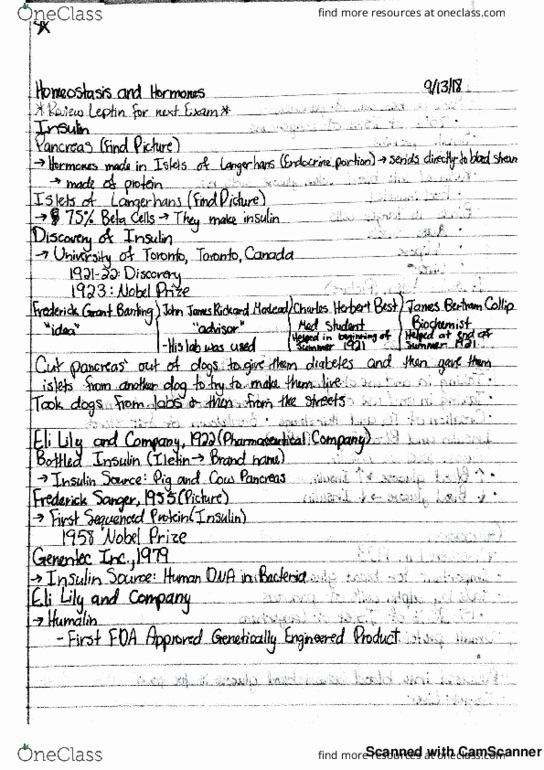 OneClass
find more resources at oneclass.com
Homeostasis and Hormones 9/13/18
*Review Leptin for next Exam*
Insulin
Pancreas (Find Picture)
→ Hormones made in Islets of Langerhans (Endocrine portion) → sends directly to blood stream
→ made of protein
Islets of Langerhans (Find Picture)
→ 75% Beta Cells → They make insulin
Discovery of Insulin
→ University of Toronto, Toronto, Canada
1921-22: Discovery
1923: Nobel Prize
Frederick Grant Banting John James Rickard Macleod Charles Herbert Best James Bertram Collip
"idea" "advisor" Med Student Biochemist
- His lab was used Helped in beginning of Summer 1921 Helped at end of Summer 1921
Cut pancreas out of dogs to give them diabetes and then gave them
islets from another dog to try to make them live
Took dogs from labs & then from the streets
Eli Lily and Company, 1922 (Pharmaceutical Company)
Bottled Insulin (Iletin → Brand name)
→ Insulin Source: Pig and Cow Pancreas
Frederick Sanger, 1955 (Picture)
→ First Sequenced Protein (Insulin)
1958 Nobel Prize
Genentec Inc., 1979
→ Insulin Source: Human DNA in Bacteria
Eli Lily and Company
→ Humalin
- First FDA Approved Genetically Engineered Product
OneClass
find more resources at oneclass.com
Scanned with CamScanner